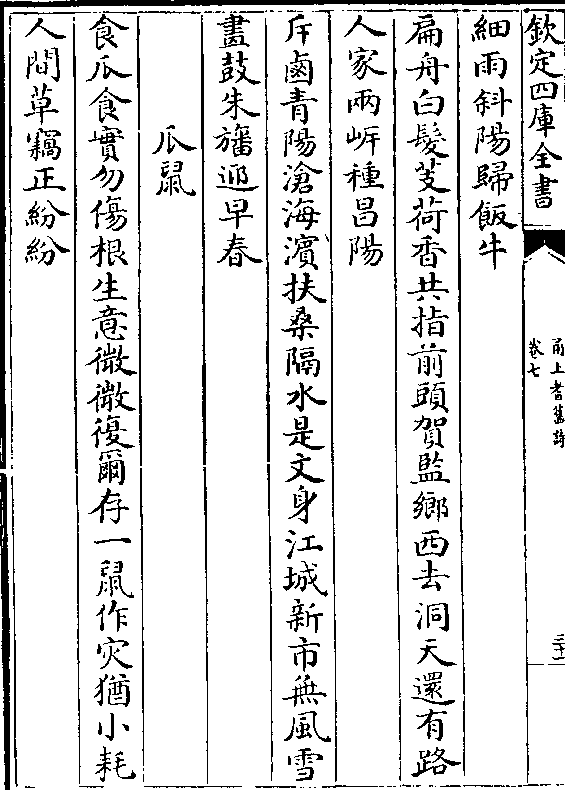 欽定四庫全書
甬上耆舊詩
卷七
三十一
細雨斜陽歸飯牛
扁舟白髮芰荷香共指前頭賀監鄉西去洞天還有路
人家兩岍種昌陽
斥鹵青陽滄海濵扶桑隔水是文身江城新市無風雪
畫鼓朱旛迎早春
瓜鼠
食瓜食實勿傷根生意微微復爾存一鼠作灾猶小耗
人間草竊正紛紛